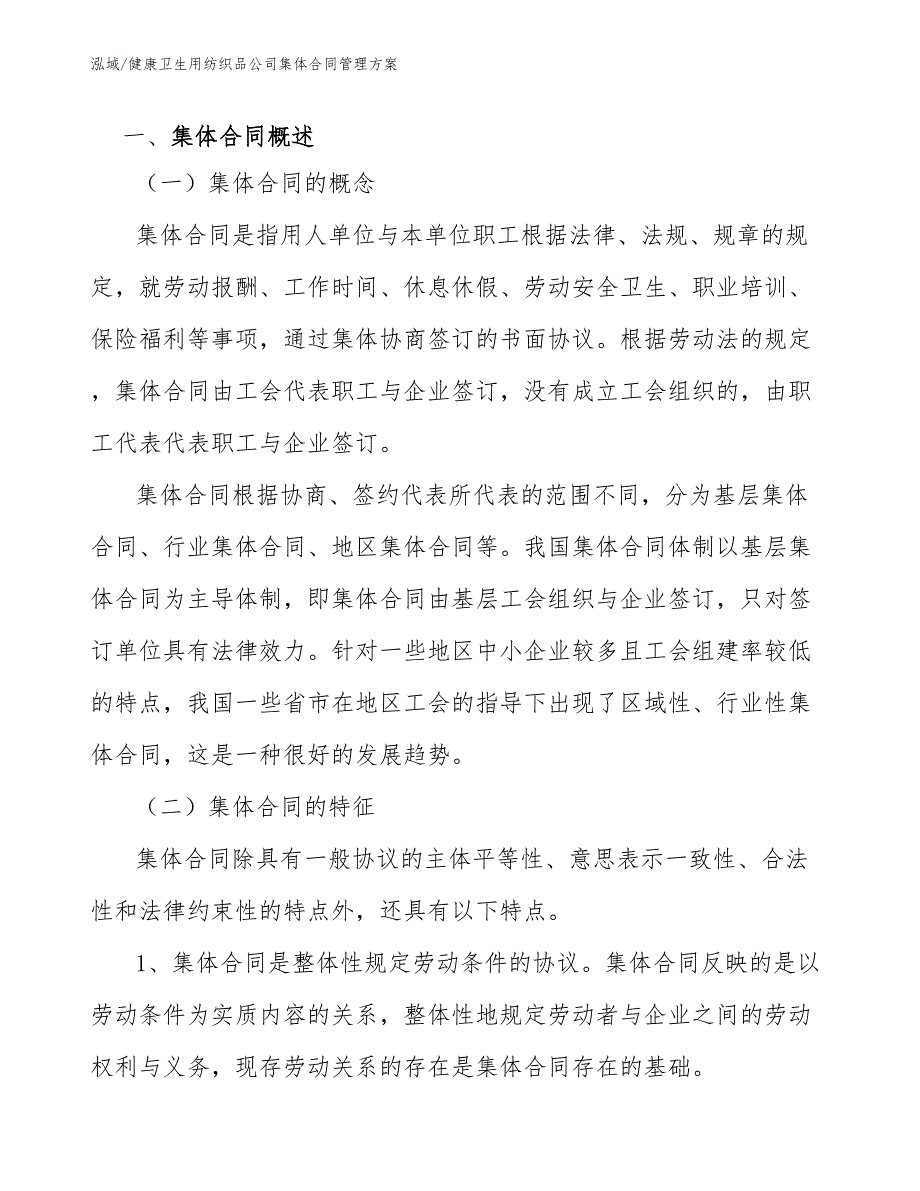 泓域/健康卫生用纺织品公司集体合同管理方案
一、集体合同概述
（一）集体合同的概念
集体合同是指用人单位与本单位职工根据法律、法规、规章的规
定，就劳动报酬、工作时间、休息休假、劳动安全卫生、职业培训、
保险福利等事项，通过集体协商签订的书面协议。根据劳动法的规定
，集体合同由工会代表职工与企业签订，没有成立工会组织的，由职
工代表代表职工与企业签订。
集体合同根据协商、签约代表所代表的范围不同，分为基层集体
合同、行业集体合同、地区集体合同等。我国集体合同体制以基层集
体合同为主导体制，即集体合同由基层工会组织与企业签订，只对签
订单位具有法律效力。针对一些地区中小企业较多且工会组建率较低
的特点，我国一些省市在地区工会的指导下出现了区域性、行业性集
体合同，这是一种很好的发展趋势。
（二）集体合同的特征
集体合同除具有一般协议的主体平等性、意思表示一致性、合法
性和法律约束性的特点外，还具有以下特点。
1、集体合同是整体性规定劳动条件的协议。集体合同反映的是以
劳动条件为实质内容的关系，整体性地规定劳动者与企业之间的劳动
权利与义务，现存劳动关系的存在是集体合同存在的基础。